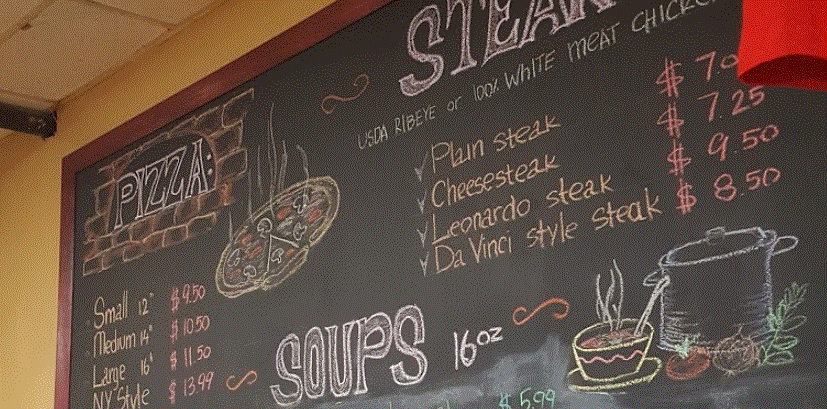 STEAK
USDA RIBEYE or 100% WHITE MEAT
Plain steak $ 7.0
Cheesesteak $ 7.25
Leonardo steak $ 9.50
Da Vinci style steak $ 8.50
PIZZA:
Small 12" $9.50
Medium 14" $10.50
Large 16" $11.50
NY Style $13.99
SOUPS 16oz
$5.99